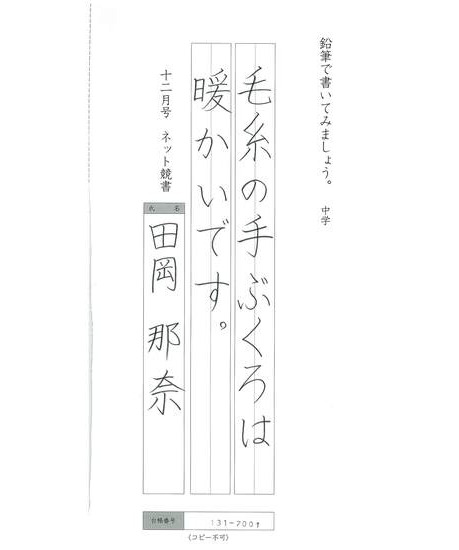 鉛筆で書いてみましょう。 中学
毛糸の手ぶくろは
暖かいです。
十二月号 ネット競書
氏名
田岡 那奈
台帳番号 131-700
(コピー不可)